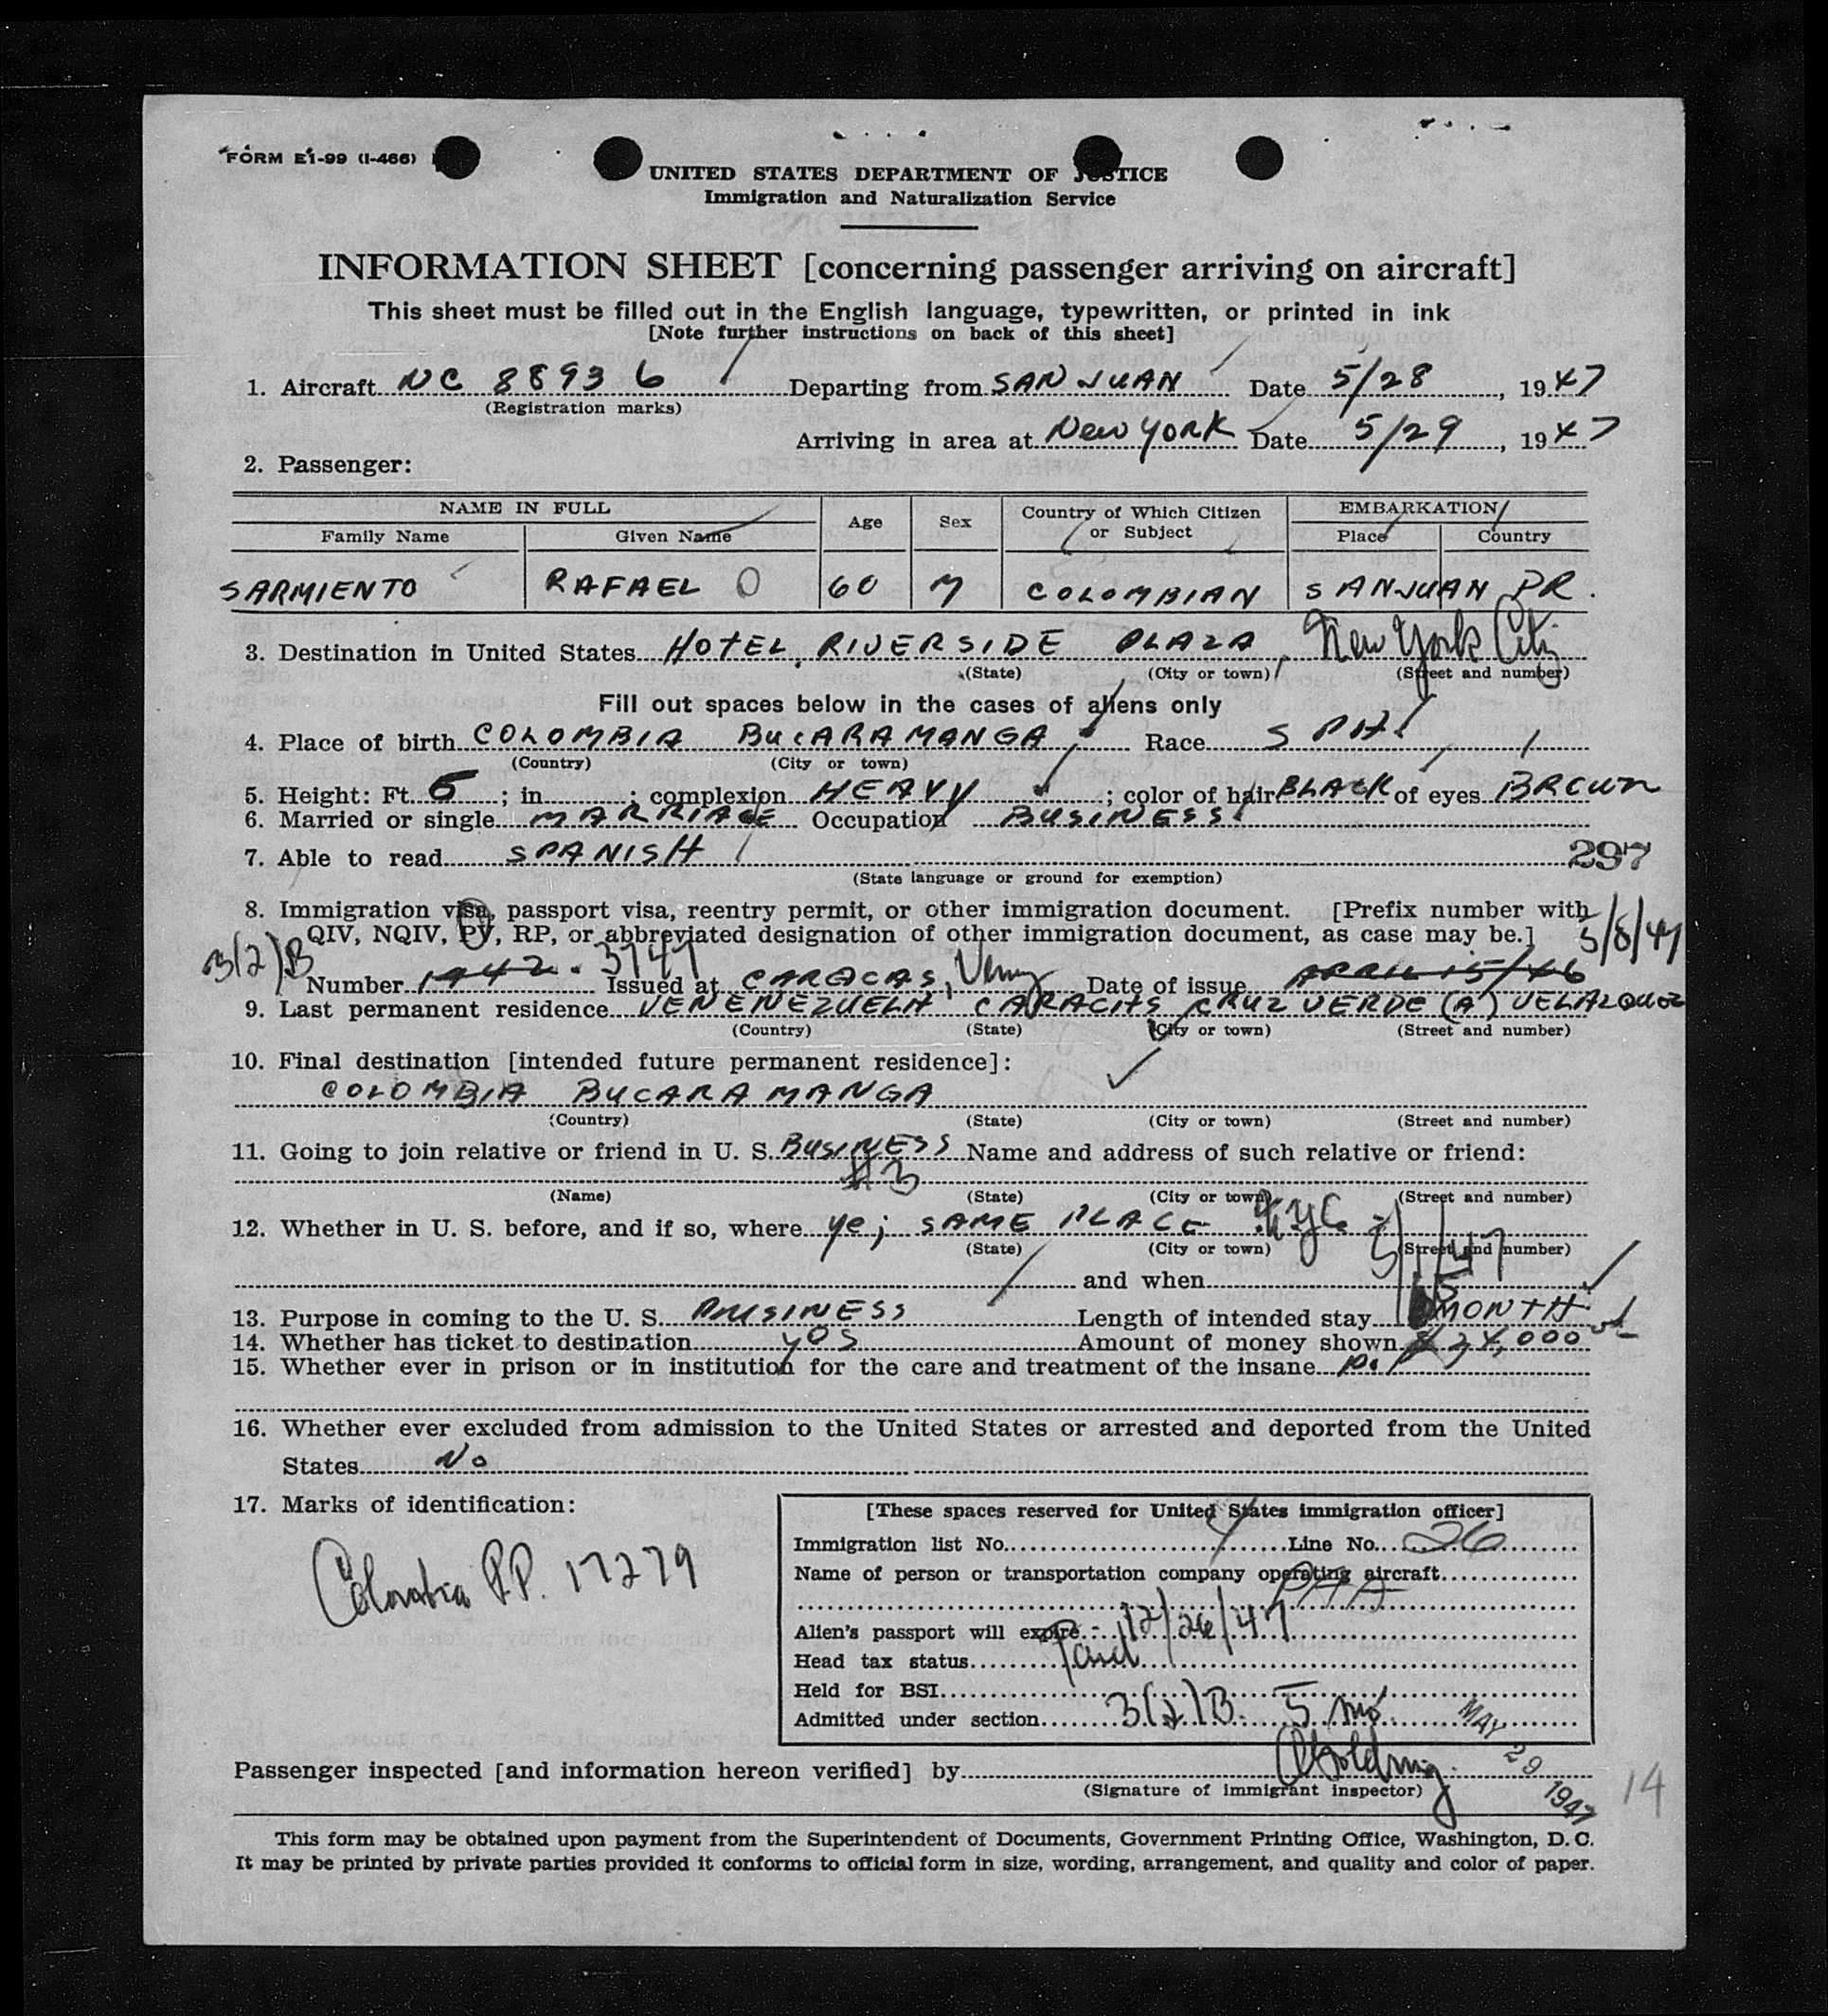 FORM E1-99 (I-466)
UNITED STATES DEPARTMENT OF JUSTICE
Immigration and Naturalization Service
INFORMATION SHEET [concerning passenger arriving on aircraft]
This sheet must be filled out in the English language, typewritten, or printed in ink
[Note further instructions on back of this sheet]
1. Aircraft NC 88936 Departing from SAN JUAN Date 5/28, 1947
(Registration marks)
Arriving in area at New YORK Date 5/29, 1947
2. Passenger:
NAME IN FULL Age Sex Country of Which Citizen or Subject EMBARKATION
Family Name Given Name Place Country
SARMIENTO RAFAEL O 60 M COLOMBIAN SANJUAN PR.
3. Destination in United States HOTEL, RIVERSIDE PLAZA, New York City
(State) (City or town) (Street and number)
Fill out spaces below in the cases of aliens only
4. Place of birth COLOMBIA BUCARAMANGA Race SPA
(Country) (City or town)
5. Height: Ft. 5; in. ; complexion HEAVY; color of hair BLACK of eyes BROWN
6. Married or single MARRIAGE Occupation BUSINESS
7. Able to read SPANISH 297
(State language or ground for exemption)
8. Immigration visa, passport visa, reentry permit, or other immigration document. [Prefix number with
QIV, NQIV, PV, RP, or abbreviated designation of other immigration document, as case may be.] 5/8/47
3(2)B Number 1942. 3747 Issued at CARACAS, Date of issue APRIL 15/46
9. Last permanent residence VENENEZUELA CARACAS CRUZ VERDE (A) VELAZQUEZ
(Country) (State) (City or town) (Street and number)
10. Final destination [intended future permanent residence]:
COLOMBIA BUCARAMANGA
(Country) (State) (City or town) (Street and number)
11. Going to join relative or friend in U. S. BUSINESS Name and address of such relative or friend:
#3
(Name) (State) (City or town) (Street and number)
12. Whether in U. S. before, and if so, where yes SAME PLACE NYC
(State) (City or town) (Street and number)
and when
13. Purpose in coming to the U. S. BUSINESS Length of intended stay MONTH
14. Whether has ticket to destination yes Amount of money shown $24,000
15. Whether ever in prison or in institution for the care and treatment of the insane no
16. Whether ever excluded from admission to the United States or arrested and deported from the United
States No
17. Marks of identification:
Colombia P.P. 17279
[These spaces reserved for United States immigration officer]
Immigration list No. 4 Line No. 26
Name of person or transportation company operating aircraft
PAA
Alien's passport will expire 12/26/47
Head tax status Paid
Held for BSI
Admitted under section 3(2)B. 5 mos.
MAY 29 1947
Passenger inspected [and information hereon verified] by
(Signature of immigrant inspector)
14
This form may be obtained upon payment from the Superintendent of Documents, Government Printing Office, Washington, D. C.
It may be printed by private parties provided it conforms to official form in size, wording, arrangement, and quality and color of paper.